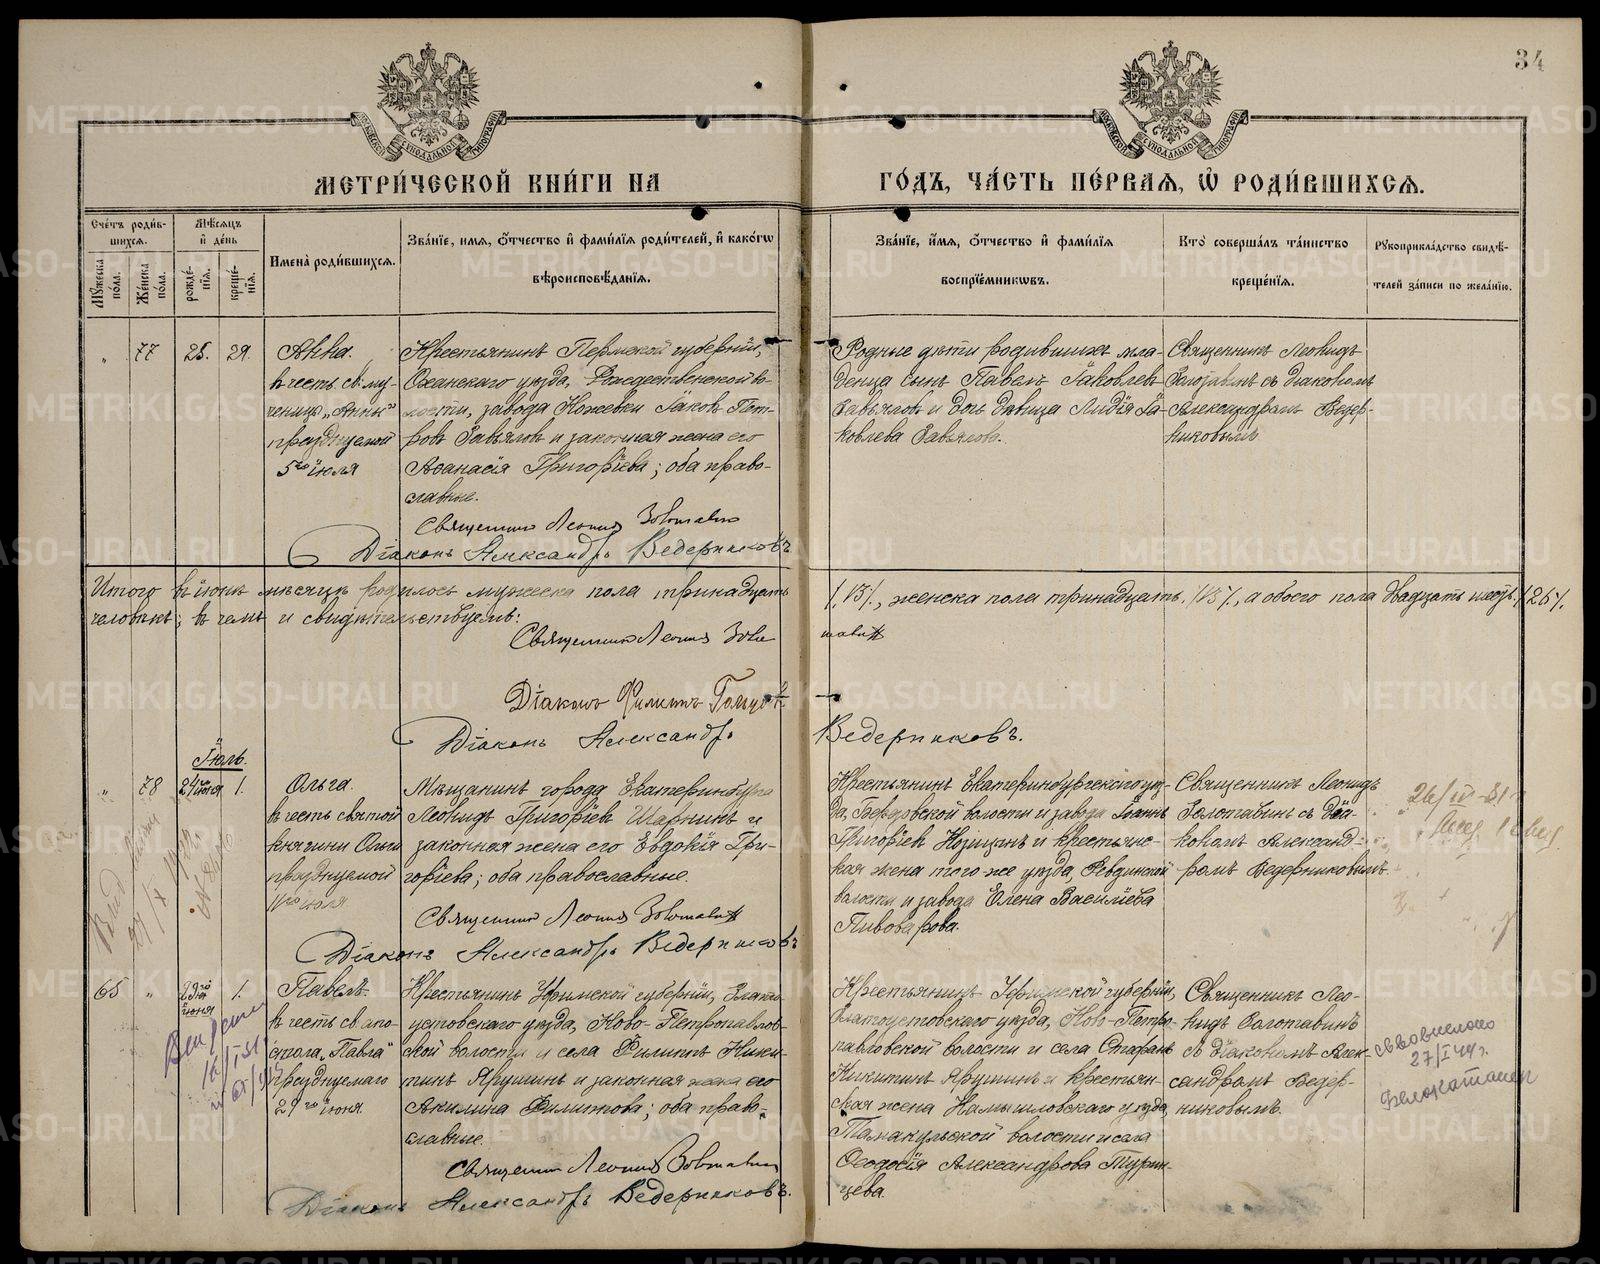 34
МЕТРИ́ЧЕСКОЙ КНИ́ГИ НА
ГО́ДЪ, ЧА́СТЬ ПЕ́РВАЯ, Ѽ РОДИ́ВШИХСЯ.
Сче́тъ роди́в-
шихся.
Мꙋ́жеска по́ла.
Же́нска по́ла.
Мѣ́сяцъ
и҆ де́нь
рожде́-
нїя.
креще́-
нїя.
И҆мена̀ роди́вшихся.
Зва́нїе, и҆мя, ѻ҆́тчество и҆ фами́лїя роди́телей, и҆ како́гѡ
вѣроисповѣ́данїя.
Зва́нїе, и҆́мя, ѻ҆́тчество и҆ фами́лїя
воспрїе́мникѡвъ.
Кто̀ соверша́лъ та́инство
креще́нїя.
Рꙋкоприкла́дство свидѣ́-
телей за́писи по жела́нїю.
„ 77 25. 29.
Анна.
въ честь св. му-
ченицы „Анны"
празднуемой
5го іюля
Крестьянинъ Пермской губерніи,
Оханскаго уѣзда, Рождественской во-
лости, завода Ножевки Іаковъ Пет-
ровъ Завьяловъ и законная жена его
Аѳанасія Григоріева; оба право-
славные.
Священникъ Леонидъ Золотавинъ
Діаконъ Александръ Ведерниковъ
Родные дѣти родившихъ мла-
денца сынъ Павелъ Іаковлевъ
Завьяловъ и дочь дѣвица Лидія Іа-
ковлева Завьялова.
Священникъ Леонидъ
Золотавинъ съ діакономъ
Александромъ Ведер-
никовымъ
Итого въ іюнѣ мѣсяцѣ родилось мужеска пола тринадцать /13/, женска пола тринадцать /13/, а обоего пола двадцать шесть /26/
человѣкъ; въ чемъ и свидѣтельствуемъ:
Священникъ Леонидъ Золотавинъ
Діаконъ Филиппъ
Діаконъ Александръ Ведерниковъ.
Іюль.
„ 78 24го іюня 1.
Ольга.
въ честь святой
княгини Ольги
празднуемой
11го іюля
Мѣщанинъ города Екатеринбурга
Леонидъ Григорьевъ Шарнинъ и
законная жена его Евдокія Гри-
горіева; оба православные.
Священникъ Леонидъ Золотавинъ
Діаконъ Александръ Ведерниковъ
Крестьянинъ Екатеринбургскаго уѣз-
да, Бердовской волости и завода Іоаннъ
Григорьевъ и крестьянс-
кая жена того-же уѣзда, Ревдинской
волости и завода Елена Василіева
Пивоварова.
Священникъ Леонидъ
Золотавинъ съ діа-
кономъ Александ-
ромъ Ведерниковымъ
65 „ 29го іюня 1.
Павелъ.
въ честь св. апо-
стола „Павла"
празднуемаго
29го іюня.
Крестьянинъ Уфимской губерніи, Злато-
устовскаго уѣзда, Ново-Петропавлов-
ской волости и села Филиппъ Ники-
тинъ Ярушинъ и законная жена его
Акилина Филиппова; оба право-
славные.
Священникъ Леонидъ Золотавинъ
Діаконъ Александръ Ведерниковъ.
Крестьянинъ Уфимской губерніи,
Златоустовскаго уѣзда, Ново-Петро-
павловской волости и села Стефанъ
Никитинъ Ярушинъ и крестьян-
ская жена Камышловскаго уѣзда,
Тамакульской волости и села
Ѳеодосія Александрова Турин-
цева.
Священникъ Лео-
нидъ Золотавинъ
съ діакономъ Алек-
сандромъ Ведер-
никовымъ.
27/I 44 г.
METRIKI.GASO-URAL.RU